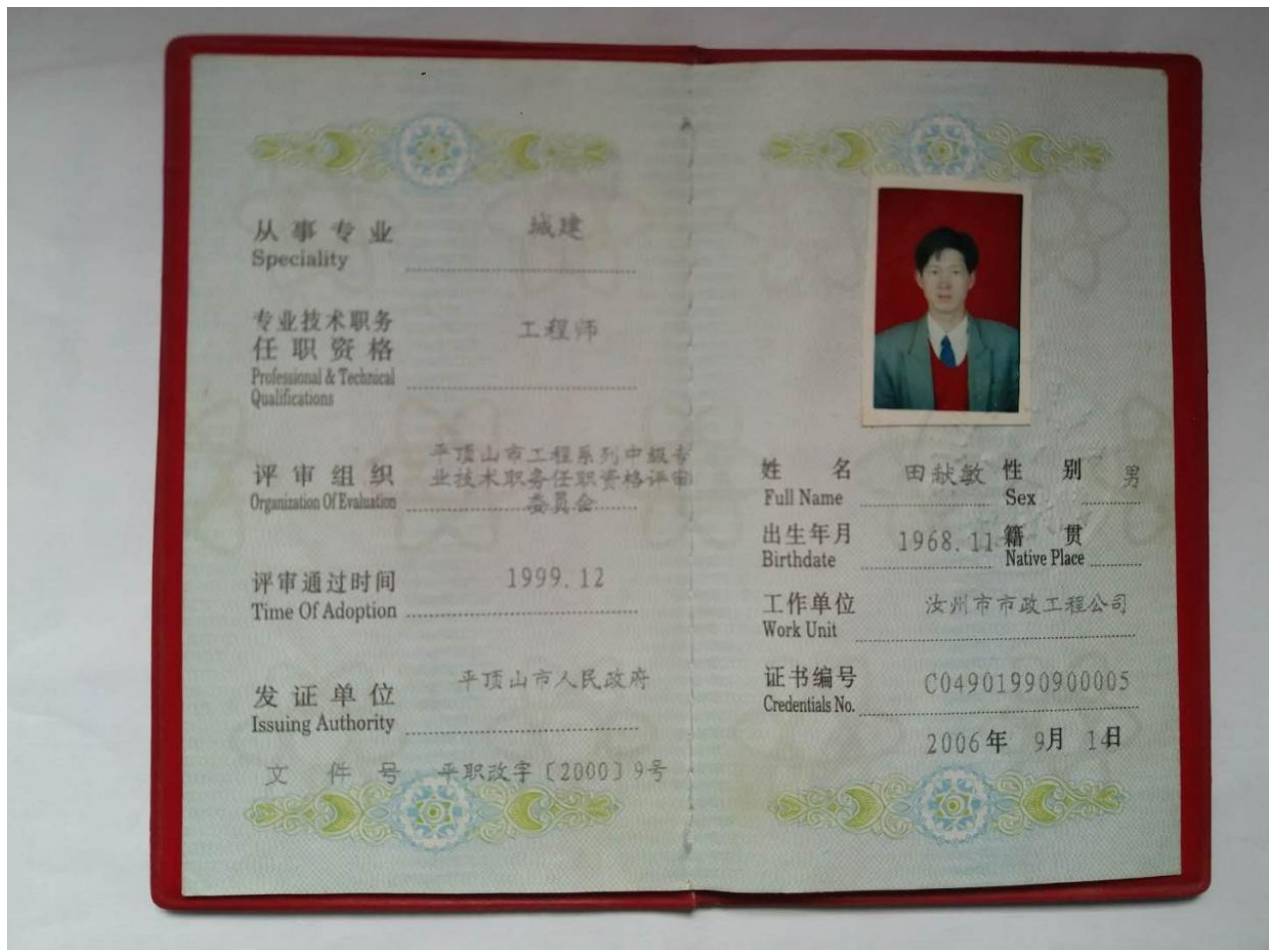 从事专业 城建
Speciality
专业技术职务
任职资格 工程师
Professional & Technical
Qualifications
平顶山市工程系列中级专
评审组织 业技术职务任职资格评审
Organization Of Evaluation 委员会
评审通过时间 1999.12
Time Of Adoption
发证单位 平顶山市人民政府
Issuing Authority
文件号 平职改字〔2000〕9号
姓名 田献敏 性别 男
Full Name Sex
出生年月 1968.11 籍贯
Birthdate Native Place
工作单位 汝州市市政工程公司
Work Unit
证书编号 C04901990900005
Credentials No.
2006年 9月 14日